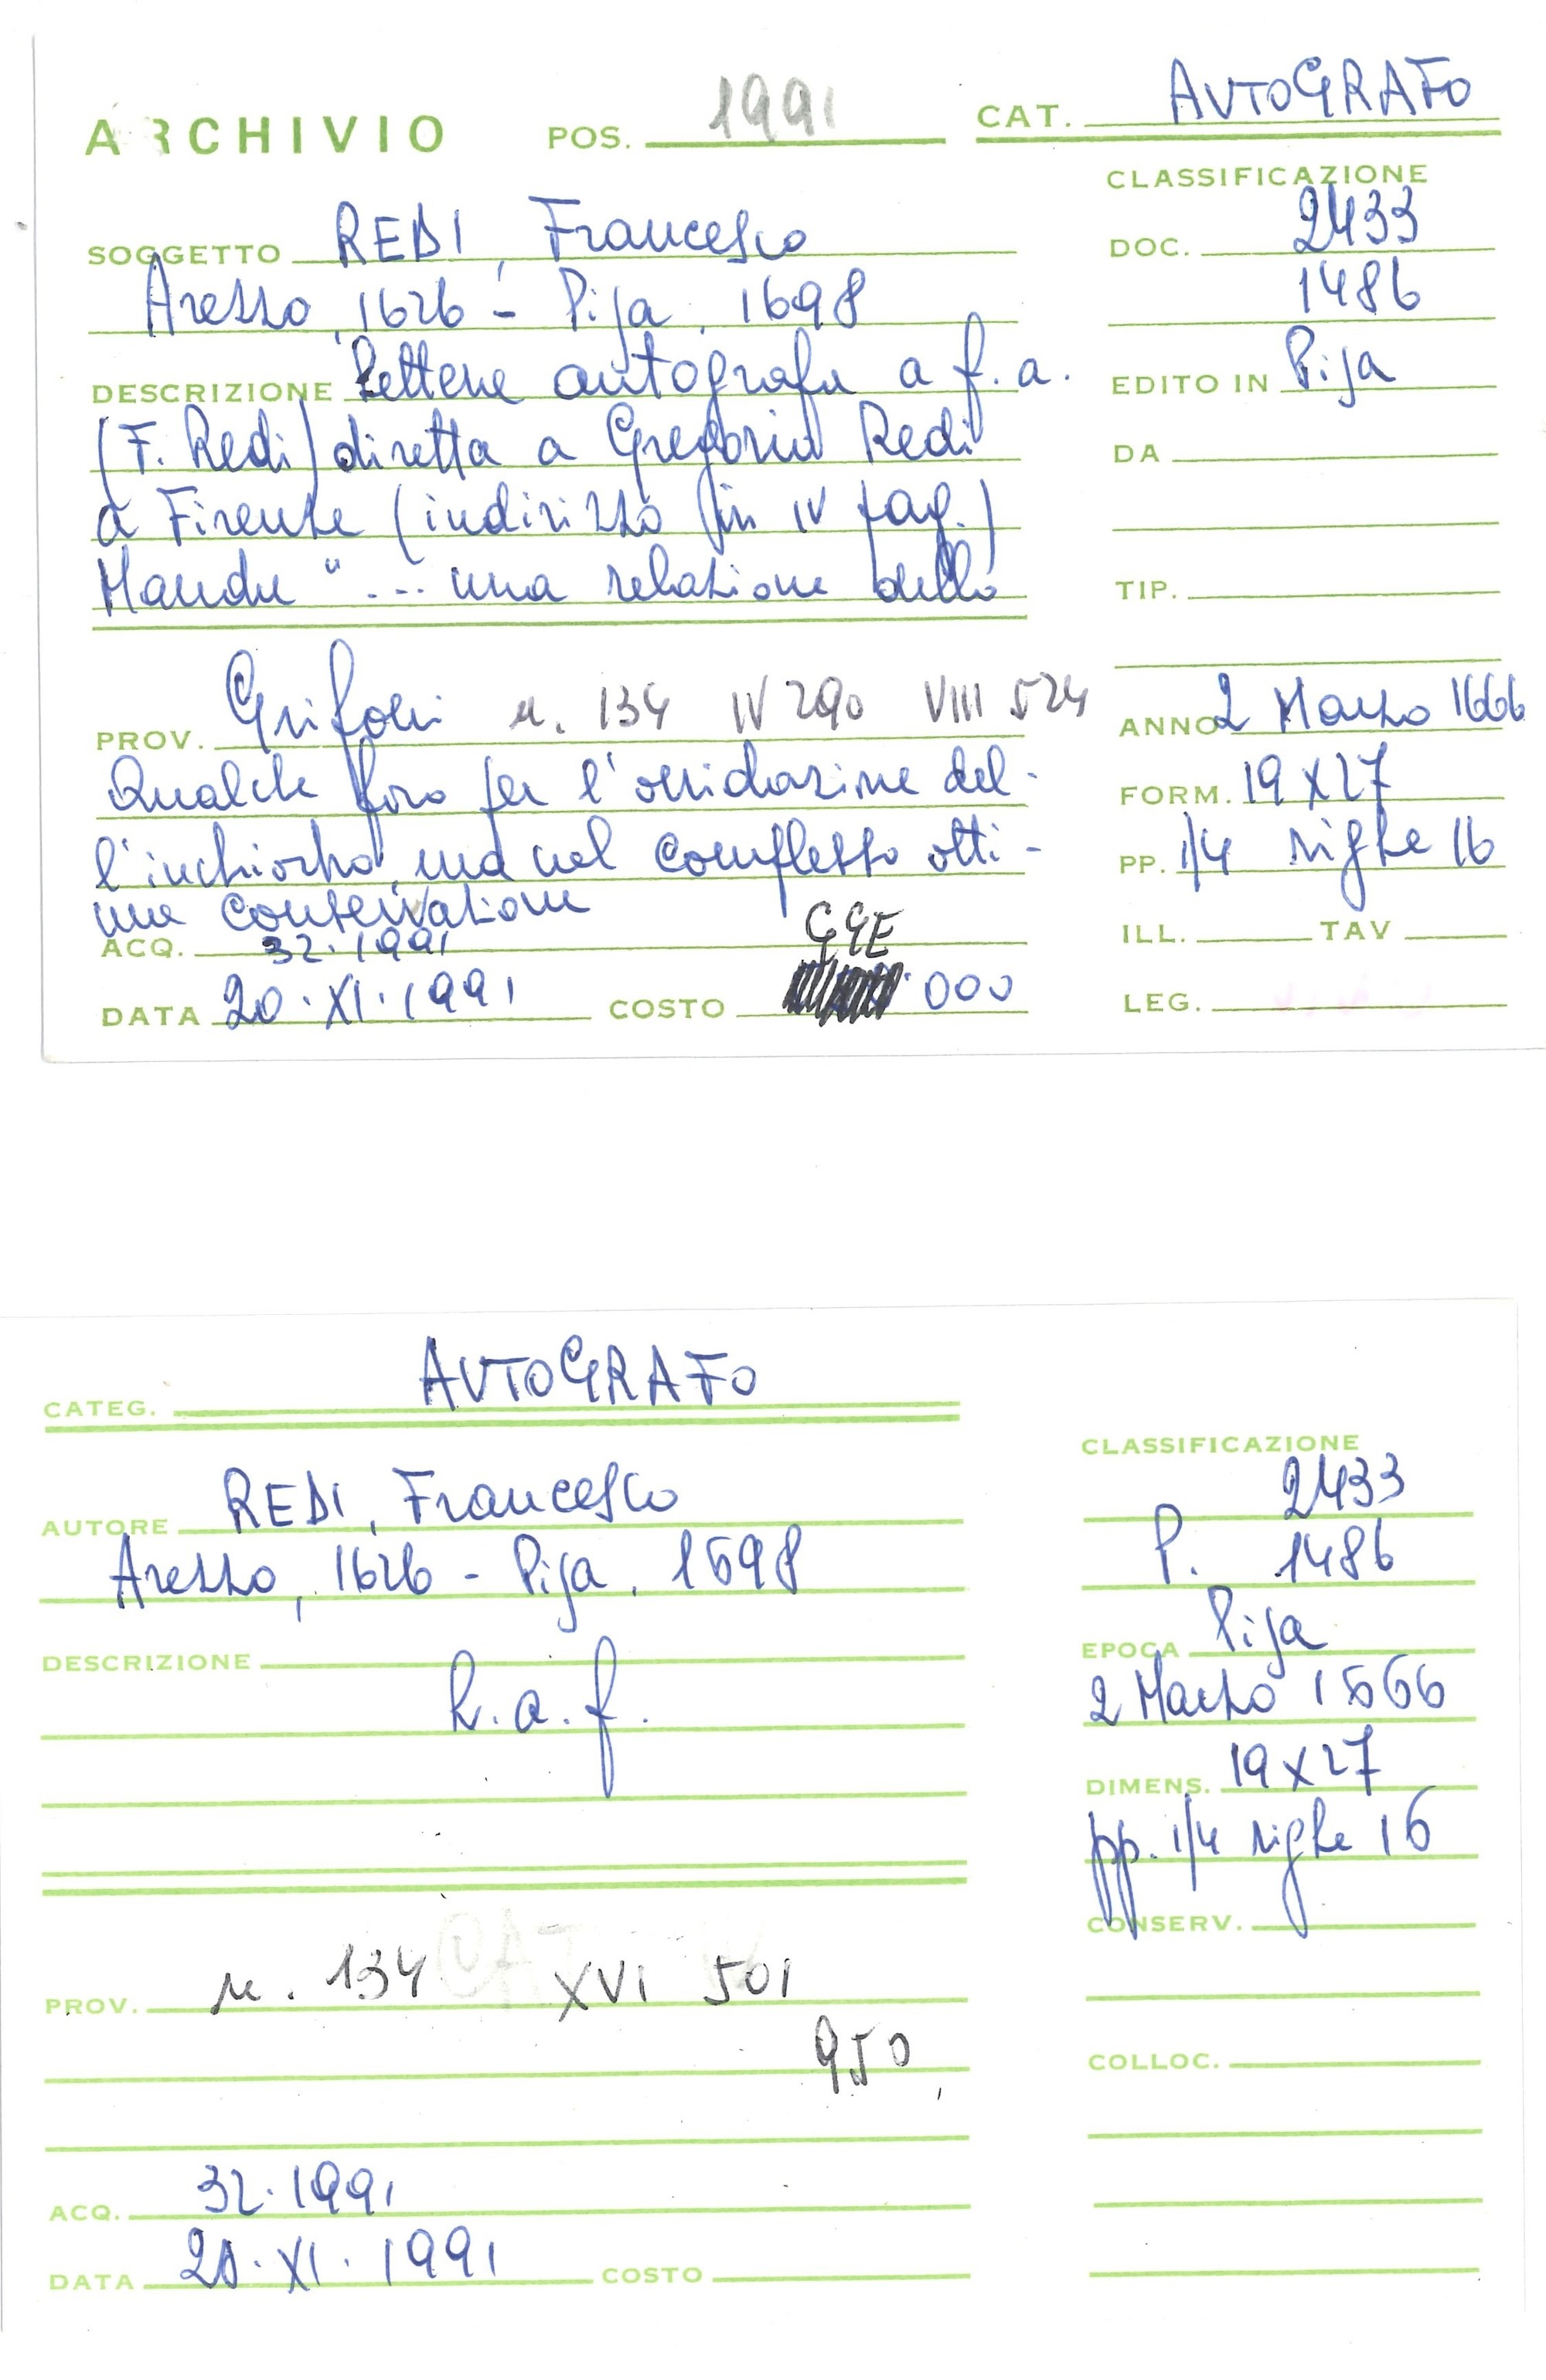 ARCHIVIO POS. 1991 CAT. AUTOGRAFO
CLASSIFICAZIONE
SOGGETTO REDI, Francesco
DOC. 2433
Arezzo, 1626 - Pisa, 1698
1486
DESCRIZIONE Lettera autografa a f.a.
EDITO IN Pisa
(F. Redi) diretta a Gregorio Redi
DA
a Firenze (indirizzo in IV pag.)
Manda "... una relazione dello
TIP.
PROV. Grifoni n. 134 IV 290 VIII 524
ANNO 2 Marzo 1666
Qualche foro per l'ossidazione del-
FORM. 19 x 27
l'inchiostro, ma nel complesso otti-
PP. 1/4 righe 16
ma conservazione
ACQ. 32.1991
GGE
ILL. TAV
DATA 20.XI.1991 COSTO .000
LEG.
CATEG. AUTOGRAFO
CLASSIFICAZIONE
AUTORE REDI, Francesco
2433
Arezzo, 1626 - Pisa, 1698
P. 1486
DESCRIZIONE
EPOCA Pisa
L.a.f.
2 Marzo 1666
DIMENS. 19 x 27
pp. 1/4 righe 16
CONSERV.
PROV. n. 134 XVI 501
950
COLLOC.
ACQ. 32.1991
DATA 20.XI.1991 COSTO